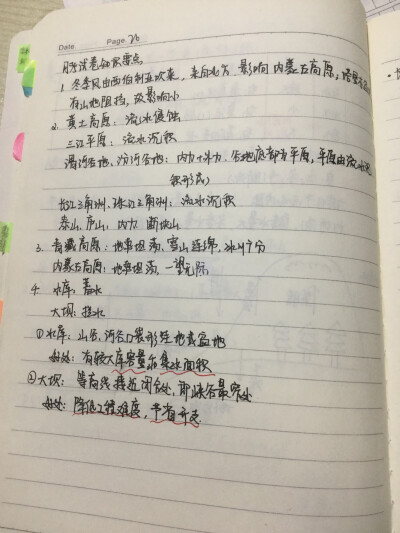 Date Page 26
月考试卷知识要点
1. 冬季风由西伯利亚吹来，来自北方，影响内蒙古高原，塔里木
有山地阻挡，故影响小
2. 黄土高原：流水侵蚀
三江平原：流水沉积
渭河谷地、汾河谷地：内力+外力，谷地底部为平原，平原由流水沉
积形成）
长江三角洲、珠江三角洲：流水沉积
泰山、庐山，内力 断块山
3. 青藏高原：地率坦荡，雪山连绵，冰川广分
内蒙古高原：地率坦荡，一望无际
4. 水库：蓄水
大坝：拦水
①水库：山谷、河谷口袋形洼地或盆地
好处：有较大库容量和集水面积
②大坝：等高线接近闭合处，即峡谷最窄处
好处：降低工程难度，节省开支